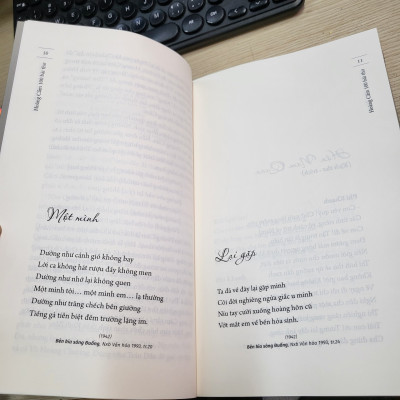 10
Hoàng Cầm 100 bài thơ
Một mình
Dường như cánh gió không bay
Lời ca không hát rượu đầy không men
Dường như nhớ lại không quen
Một mình tôi... một mình em... lạ thường
Dường như trăng chếch bên giường.
Tiếng gà tiễn biệt đêm trường lặng im.
(1942)
Bên kia sông Đuống, NxB Văn hóa 1993, tr.20
11
Hoàng Cầm 100 bài thơ
Lại gặp
Ta đã về đây lại gặp mình
Cõi đời nghiêng ngửa giấc u minh
Níu tay cười xuống hoàng hôn cũ
Vớt mắt em về bến hóa sinh.
(1942)
Bên kia sông Đuống, NxB Văn hóa 1993, tr.24